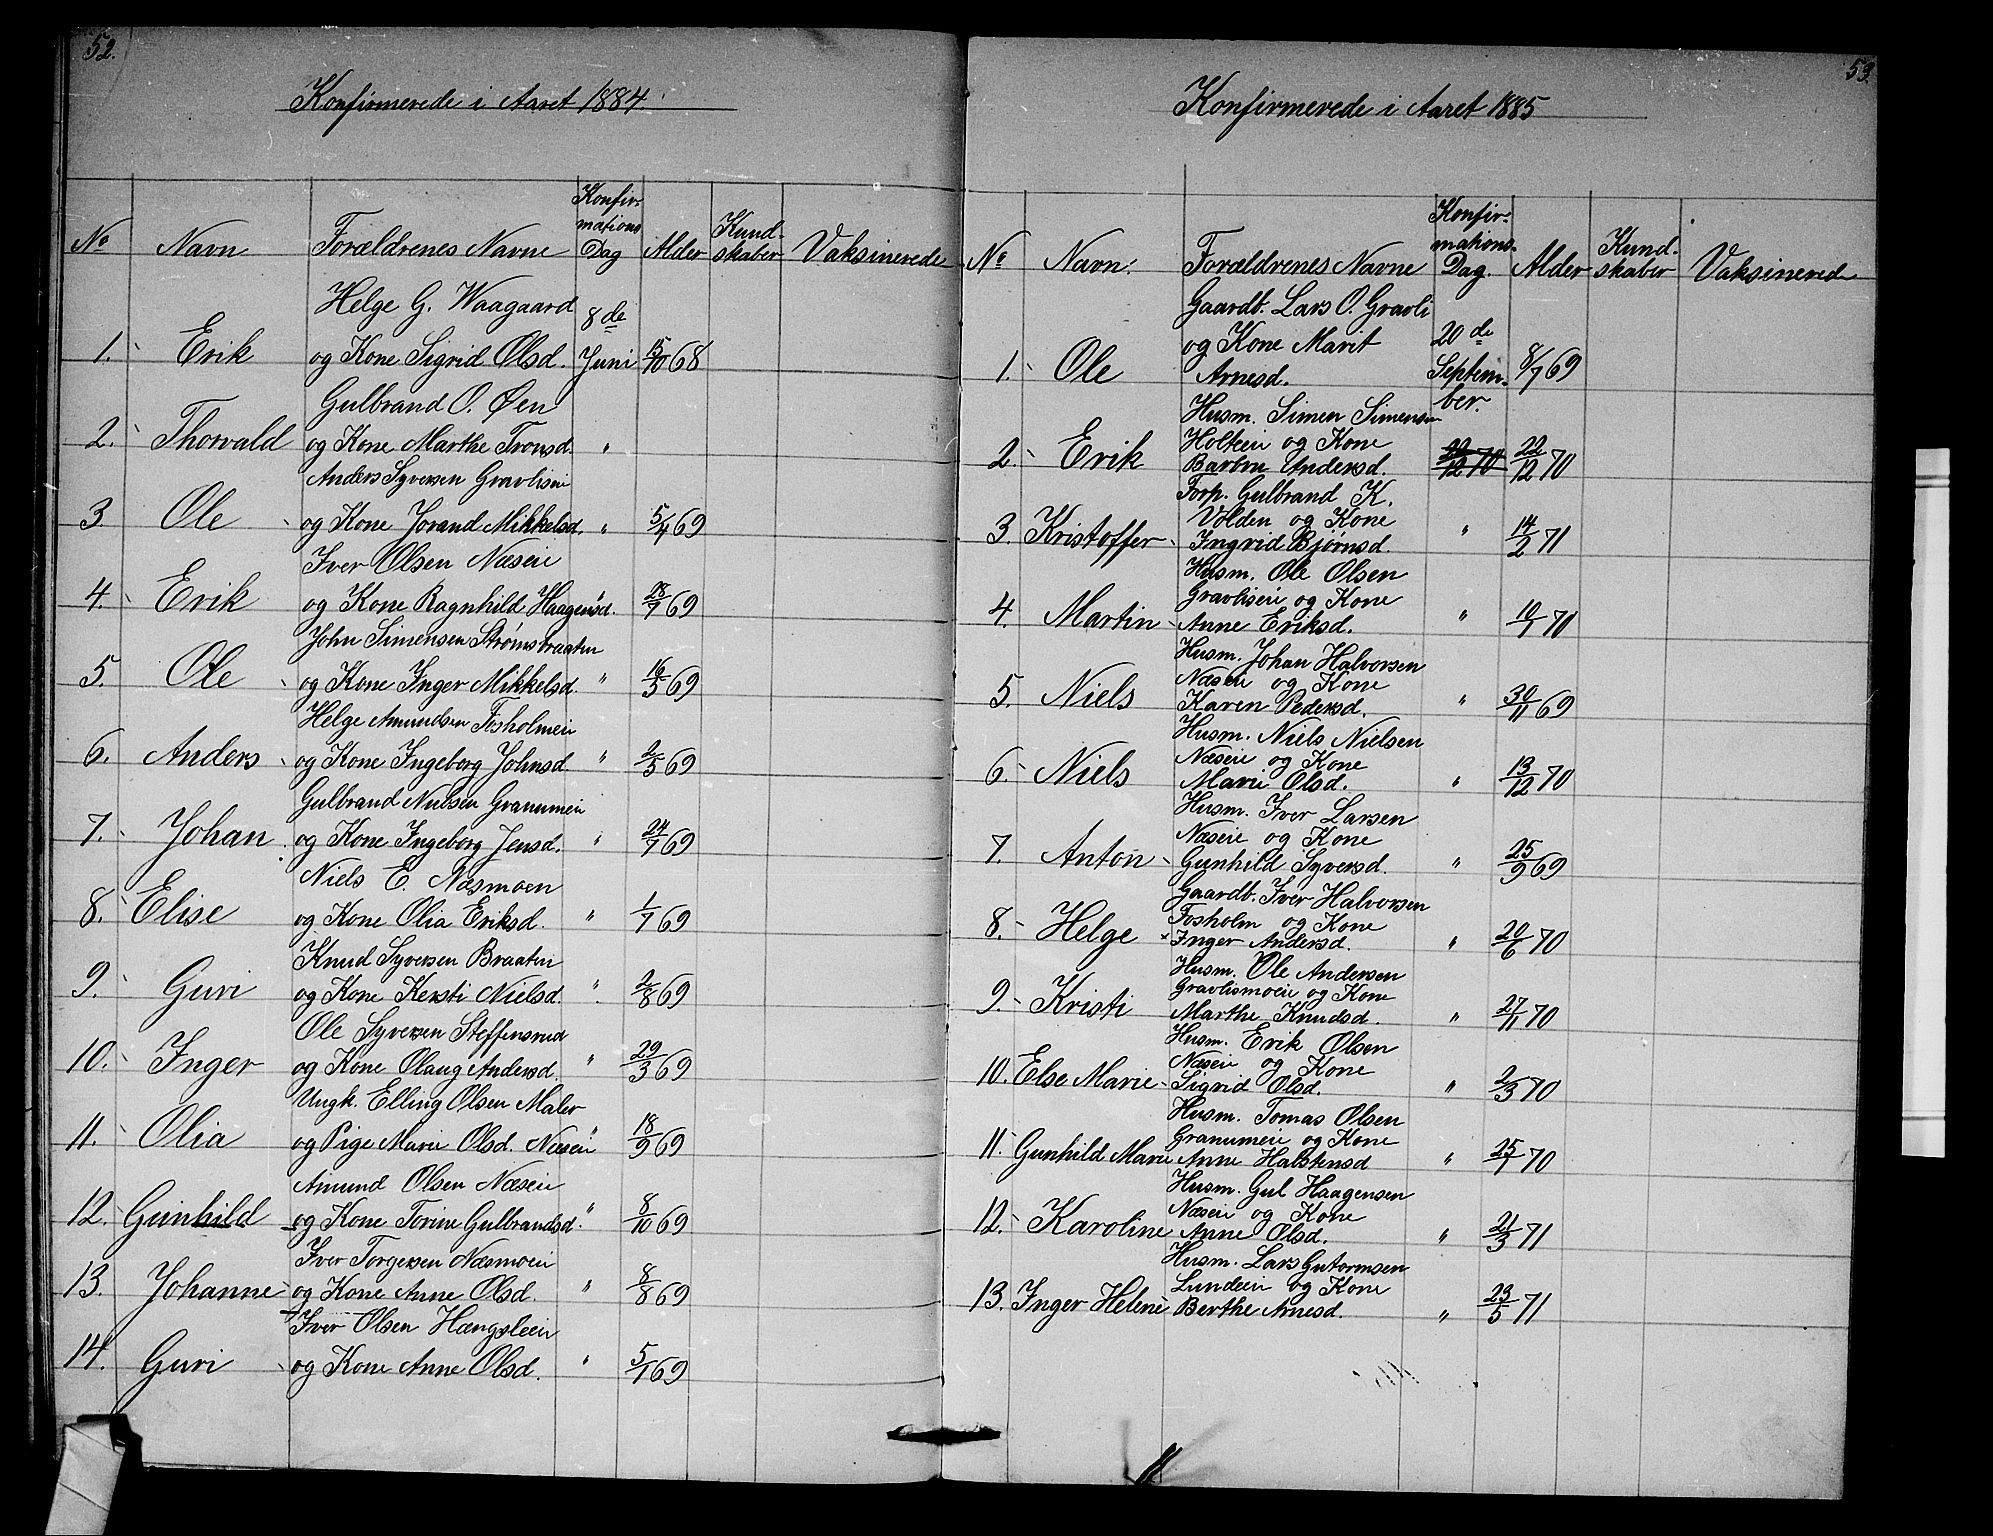 52.
Konfirmerede i Aaret 1884
No Navn Forældrenes Navne Konfirmations Dag Alder Kundskaber Vaksinerede
Helge G. Waagaard 8de
1. Erik og Kone Sigrid Olsd. Juni 15/10 68
Gulbrand O. Øen
2. Thorvald og Kone Marthe Tronsd. "
Anders Syversen Gravliseie
3. Ole og Kone Jorand Mikkelsd. " 5/4 69
Iver Olsen Næseie
4. Erik og Kone Ragnhild Haagensd. " 28/7 69
John Simensen Strømsbraaten
5. Ole og Kone Inger Mikkelsd. " 16/5 69
Helge Amundsen Fosholmeie
6. Anders og Kone Ingeborg Johnsd. " 2/5 69
Gulbrand Nielsen Granumeie
7. Johan og Kone Ingeborg Jensd. " 24/7 69
Niels E. Næsmoen
8. Elise og Kone Olia Eriksd. " 1/7 69
Knud Syversen Braaten
9. Guri og Kone Kersti Nielsd. " 2/8 69
Ole Syversen Steffensrud
10. Inger og Kone Olaug Andersd. " 29/3 69
Ungk. Elling Olsen Maler
11. Olia og Pige Marie Olsd. Næseie " 18/9 69
Amund Olsen Næseie
12. Gunhild og Kone Torine Gulbrandsd. " 8/10 69
Iver Torgersen Næsmoeie
13. Johanne og Kone Anne Olsd. " 8/8 69
Iver Olsen Hængsleeie
14. Guri og Kone Anne Olsd. " 5/1 69
53.
Konfirmerede i Aaret 1885
No Navn. Forældrenes Navne Konfirmations-Dag. Alder Kundskaber Vaksinered
Gaardb. Lars O. Gravli
og Kone Marit 20de
1. Ole Arnesd. September. 8/7 69
Husm. Simen Simensen
Holteie og Kone
2. Erik Barbru Andersd. 22/12 70 22/12 70
Forp. Gulbrand K.
Volden og Kone
3. Kristoffer Ingrid Bjørnsd. " 14/2 71
Husm. Ole Olsen
Gravliseie og Kone
4. Martin Anne Eriksd. " 10/1 70
Husm. Johan Halvorsen
Næseie og Kone
5. Niels Karen Pedersd. " 30/11 69
Husm. Niels Nielsen
Næseie og Kone
6. Niels Marie Olsd. " 13/12 70
Husm. Iver Larsen
Næseie og Kone
7. Anton Gunhild Syversd. " 25/9 69
Gaardb. Iver Halvorsen
Fosholm og Kone
8. Helge Inger Andersd. " 20/6 70
Husm. Ole Andersen
Gravlismoeie og Kone
9. Kristi Marthe Knudsd. " 27/11 70
Husm. Erik Olsen
Næseie og Kone
10. Else Marie Sigrid Olsd. " 2/3 70
Husm. Tomas Olsen
Granumeie og Kone
11. Gunhild Marie Anne Halstensd " 25/1 70
Husm. Gul Haagensen
Næseie og Kone
12. Karoline Anne Olsd. " 21/3 71
Husm. Lars Gutormsen
Lundeeie og Kone
13. Inger Helene Berthe Arnesd. " 23/5 71